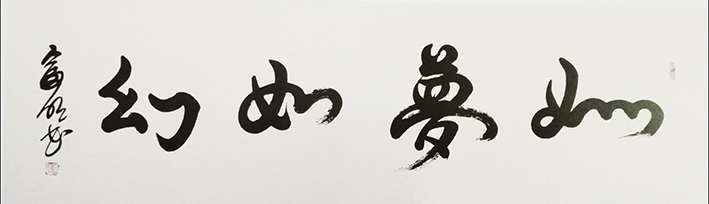 如夢如幻